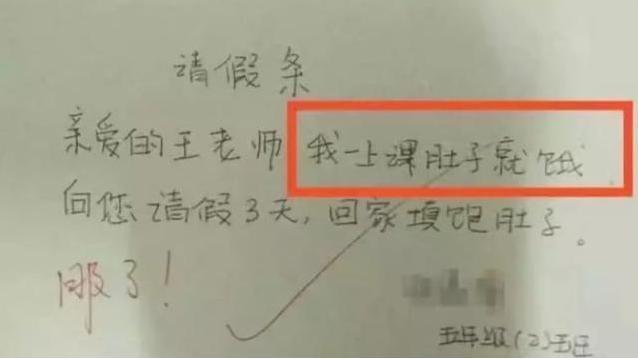 请假条
亲爱的王老师 我一上课肚子就饿
向您请假3天，回家填饱肚子。
服了！
五年级（2）班